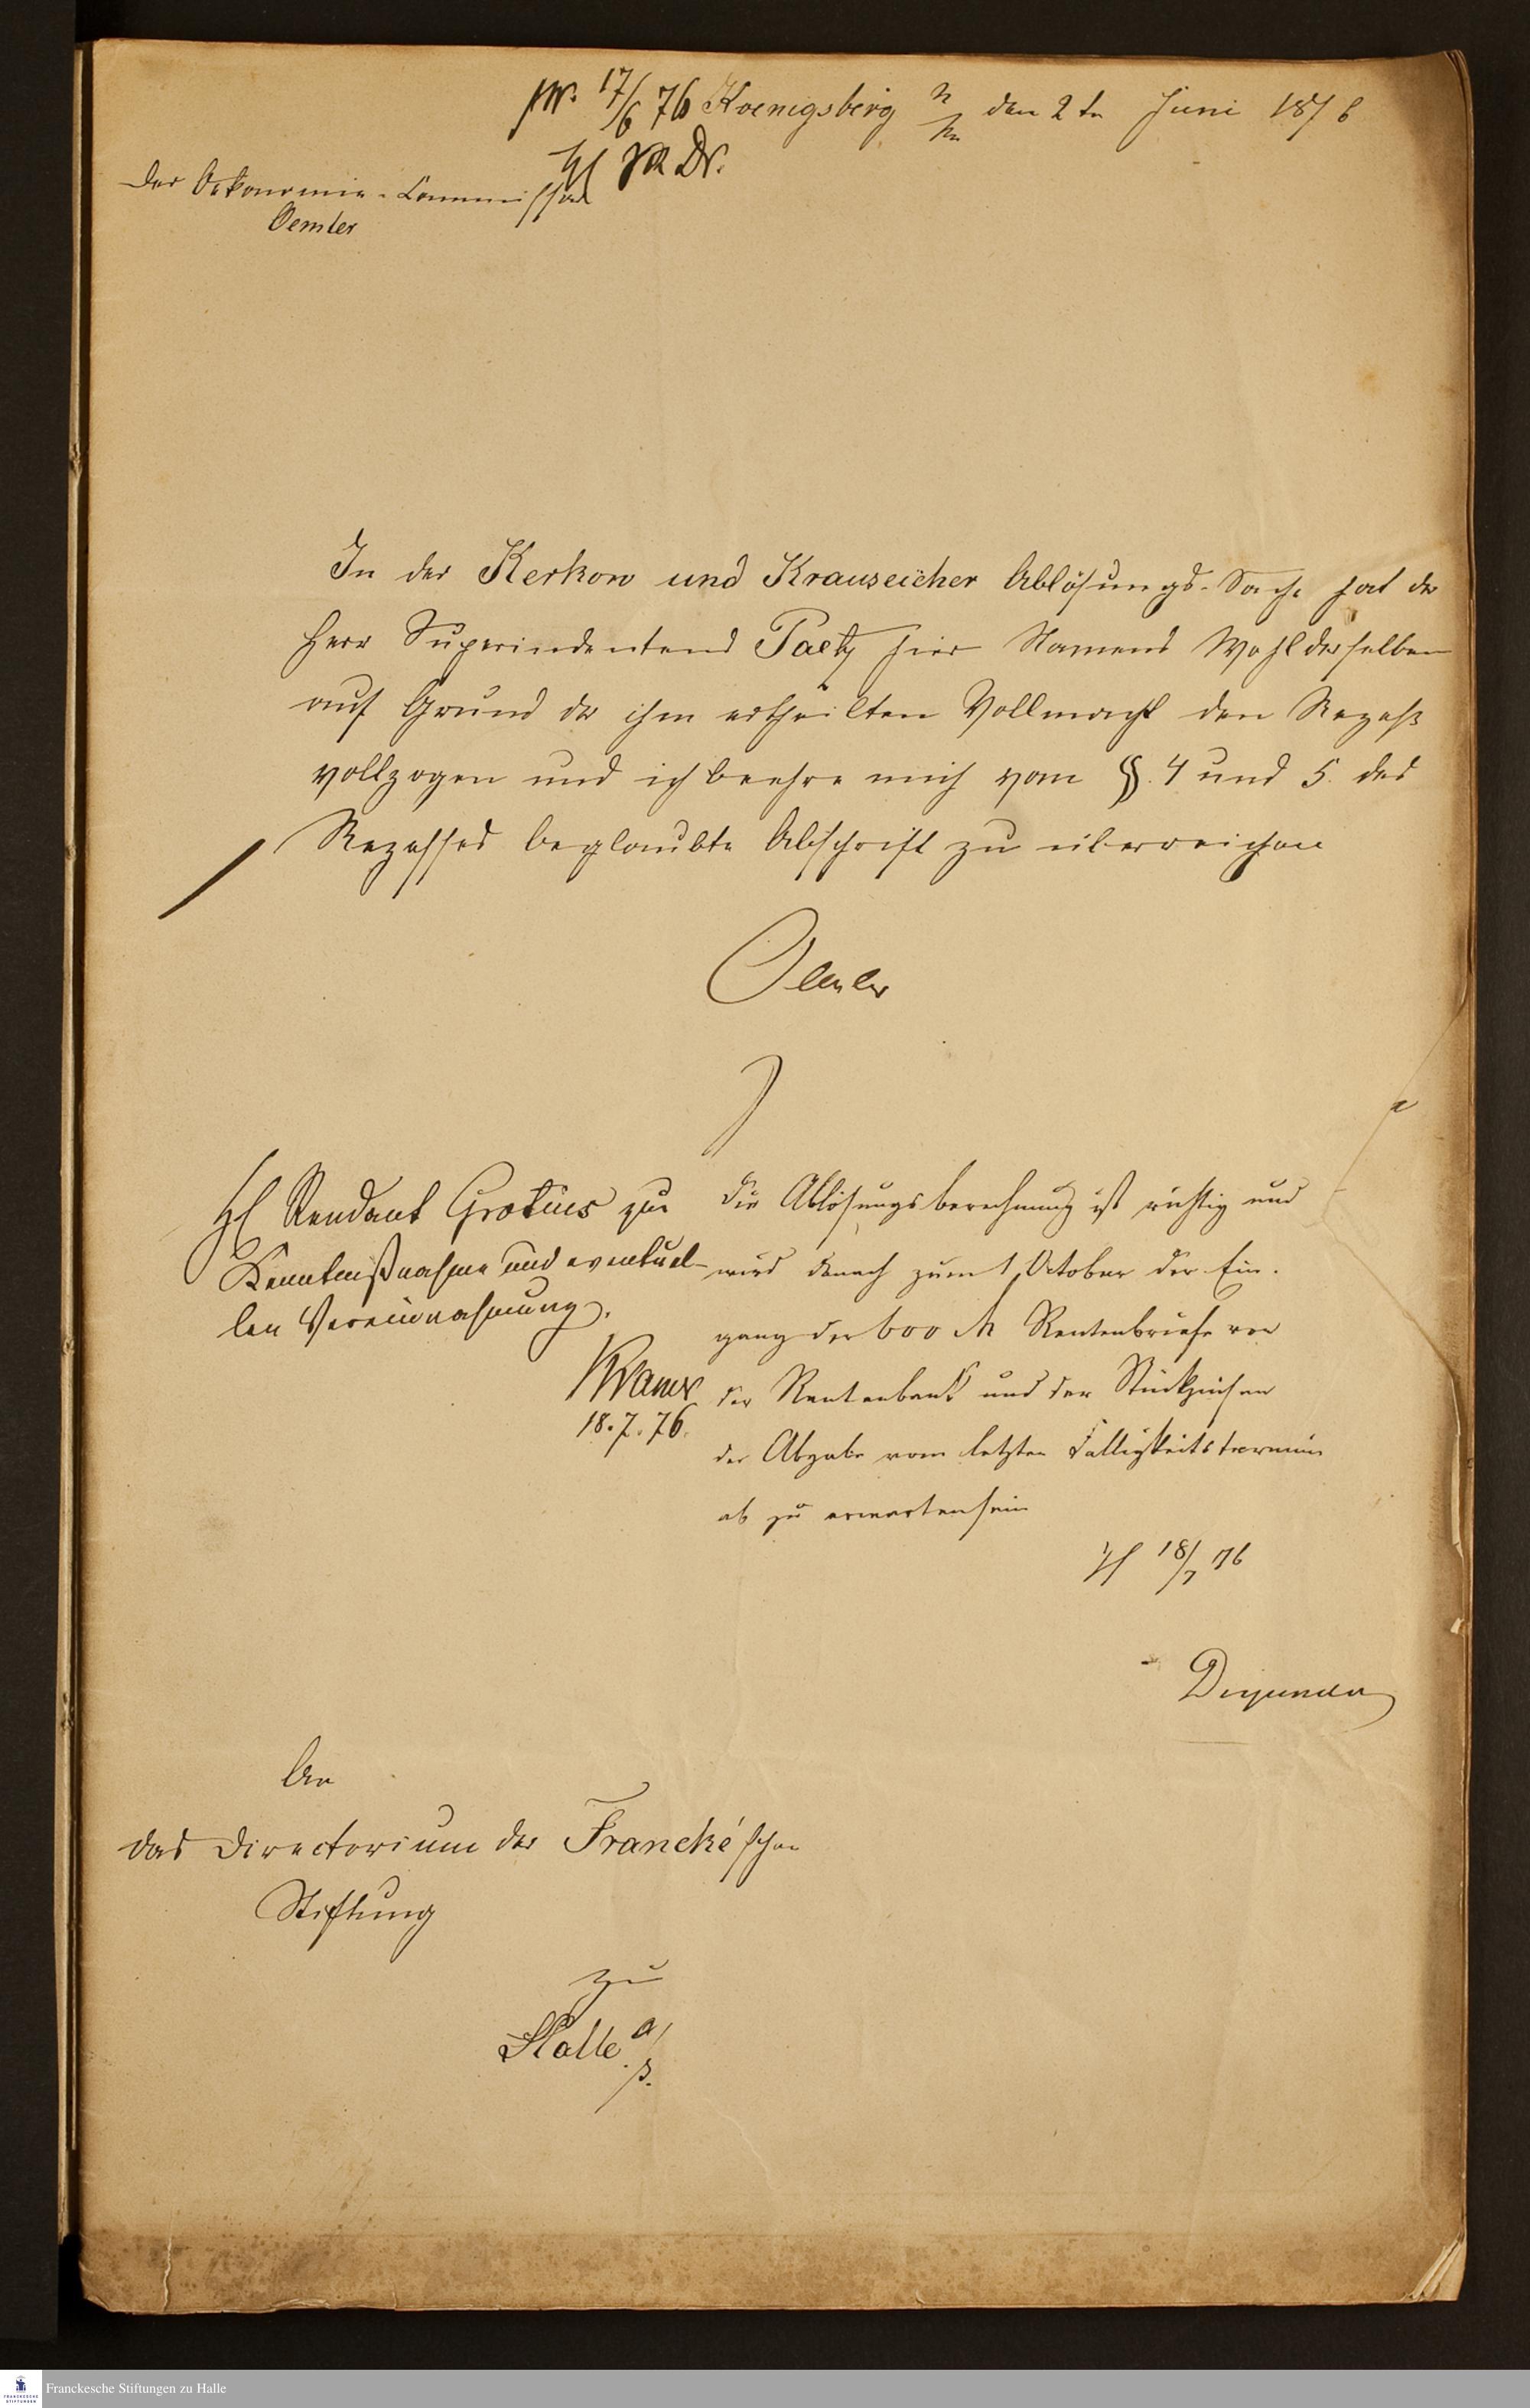 pr. 17/6 76 Koenigsberg n/m den 2 tn Juni 1876
Der Oekonomie-Commissar
Oemler
In der Kerkow und Krauseicher Ablösungs-Sache hat der
Herr Superindentend Paetz hier Namens Wohlderselben
auf Grund der ihm ertheilten Vollmacht den Rezeß
vollzogen und ich beehre mich vom §. 4 und 5. des
Rezesses beglaubte Abschrift zu überreichen
Oemler
H Rendant Grotius zur
Kenntnißnahme und eventuel-
len Vereinnahmung.
Kramer
18.7.76.
Die Ablösungsberechnung ist richtig und
wird danach zum 1 October der Ein-
gang der 600 M Rentenbriefe von
der Rentenbank und der Stückzinsen
der Abgabe vom letzten Fälligkeitstermin
ab zu erwarten sein
H 18/7 76
An
das Directorium der Francke'schen
Stiftung
zu
Halle a/S.
Franckesche Stiftungen zu Halle
FRANCKESCHE
STIFTUNGEN